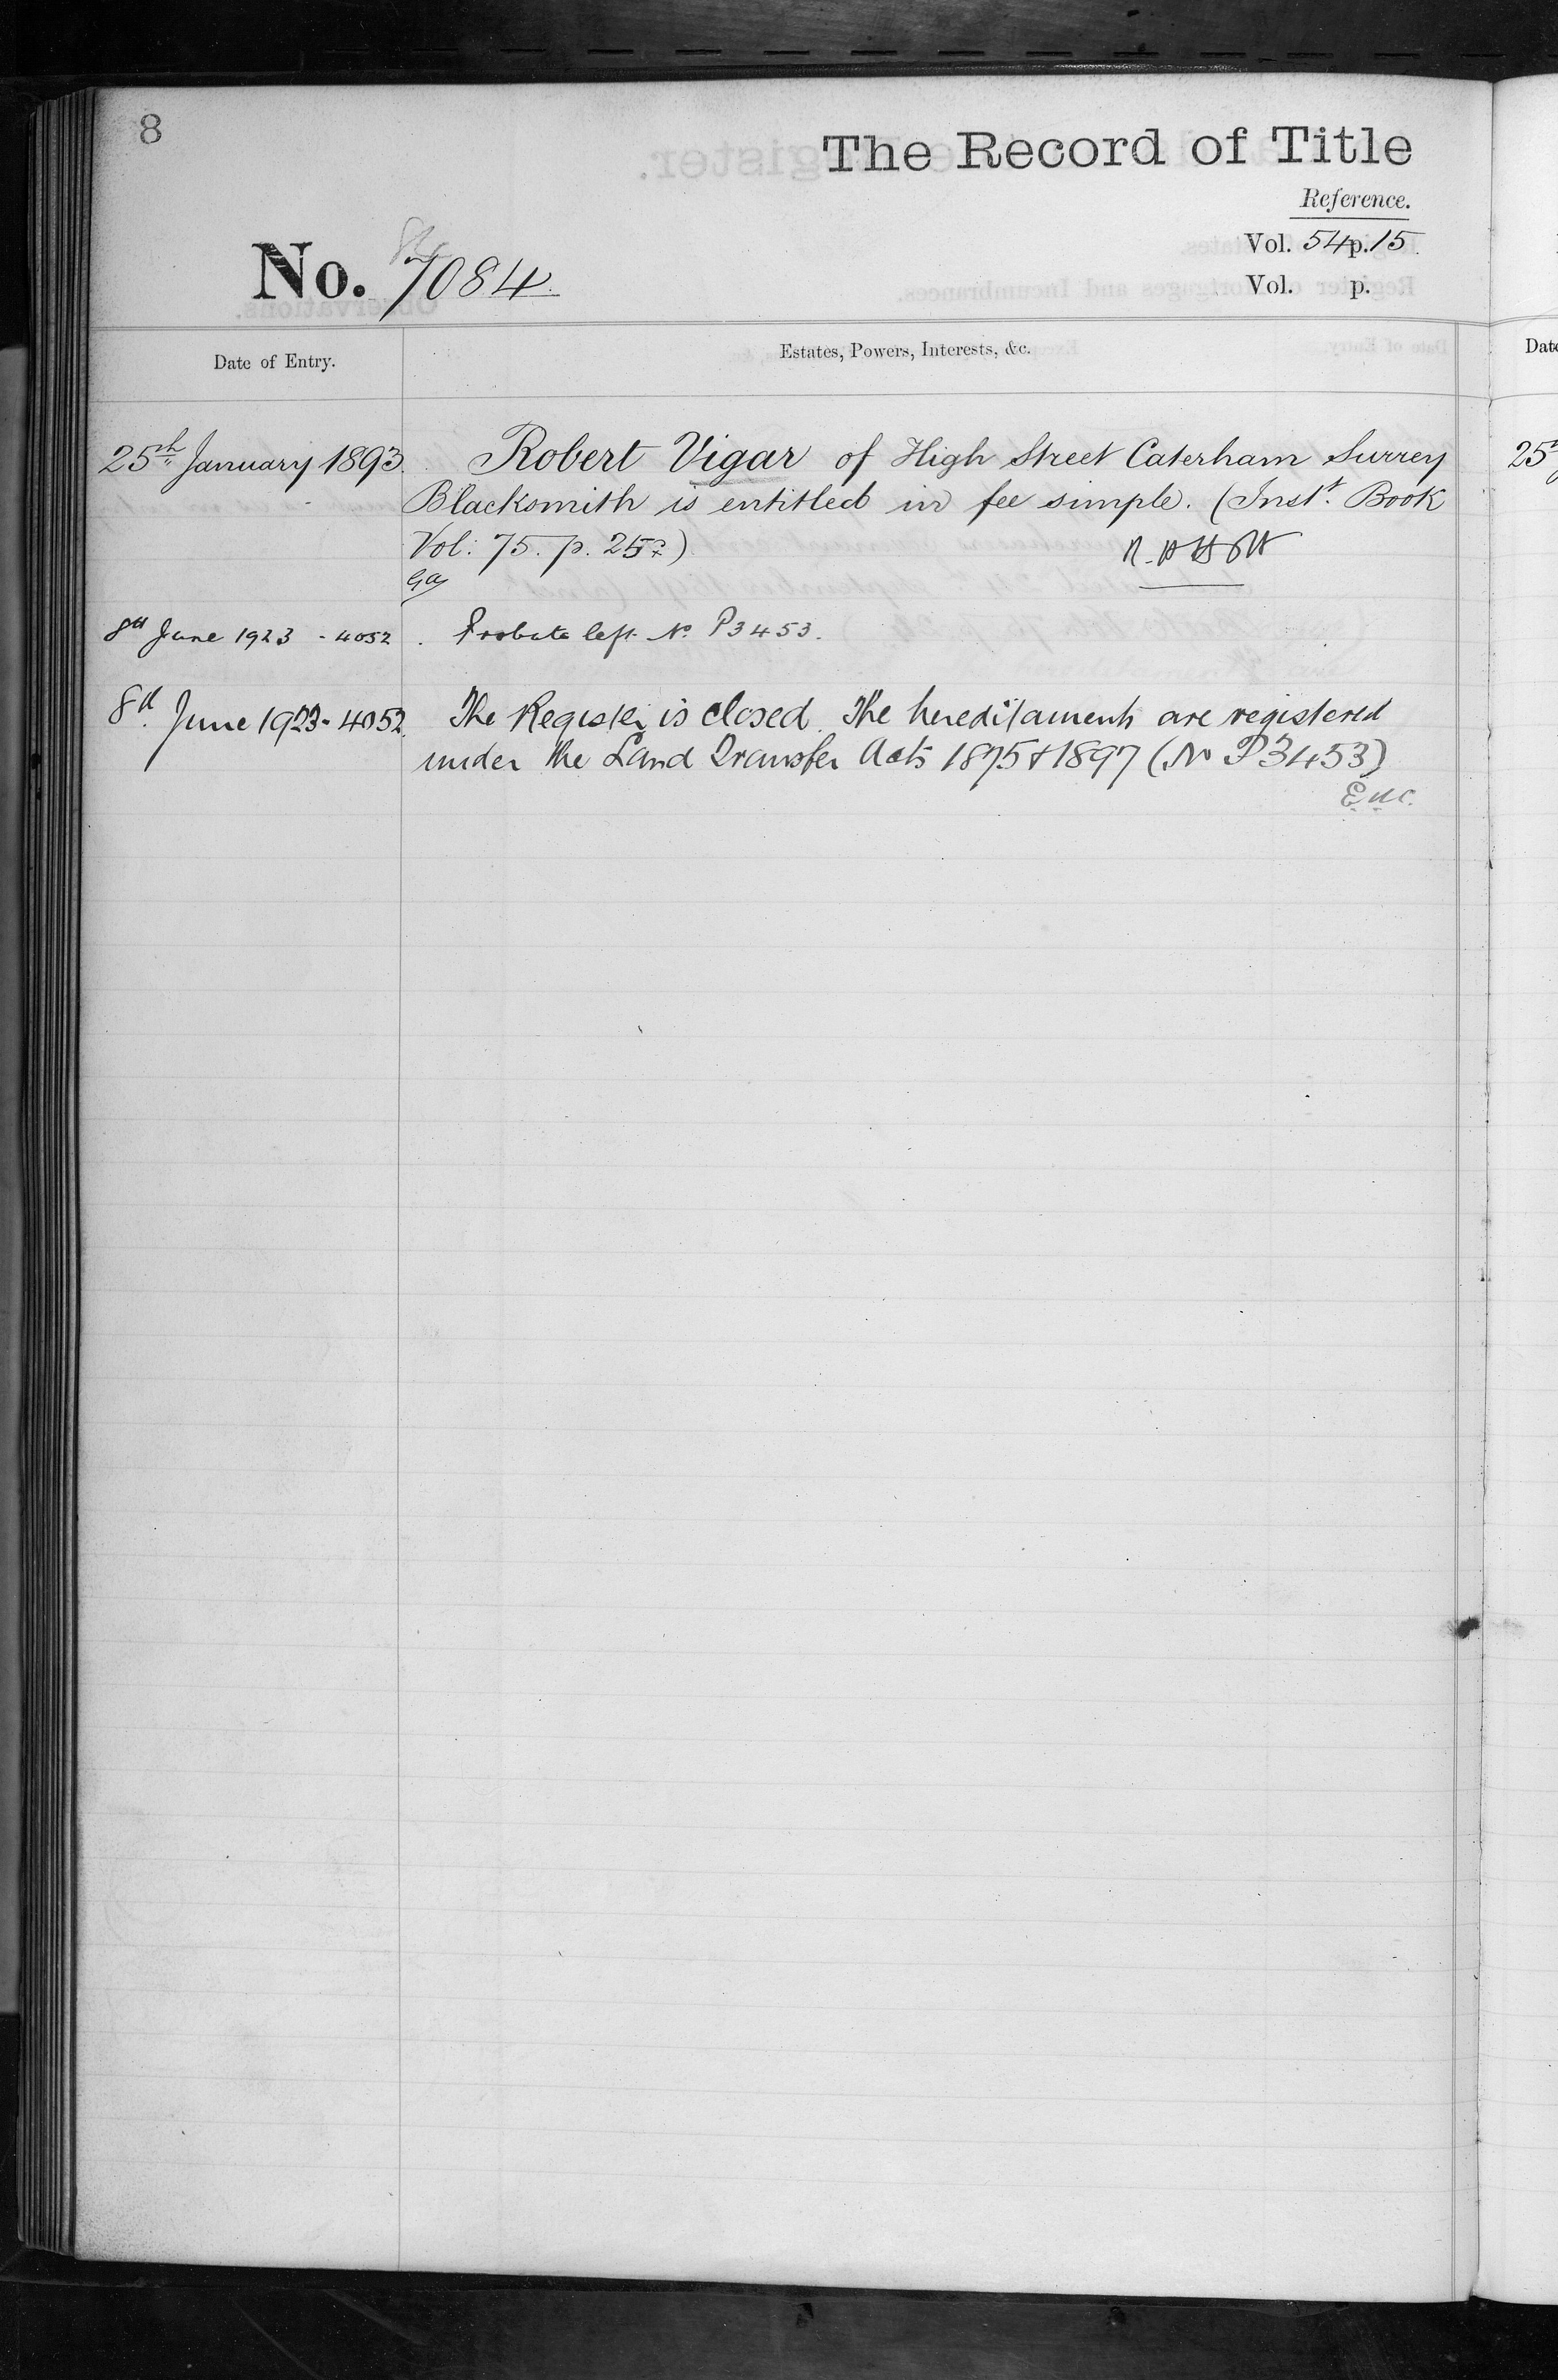 8
The Record of Title
Reference.
Vol. 54 p. 15
No. 7084
Vol. p.
Date of Entry.
Estates, Powers, Interests, &c.
Date
25th January 1893. Robert Vigar of High Street Caterham Surrey
25
Blacksmith is entitled in fee simple. (Inst. Book
Vol: 75. p. 252)
8th June 1923 - 4052. Probate left No P3453.
8th June 1923 - 4052. The Register is closed. The hereditaments are registered
under the Land Transfer Acts 1875 & 1897 (No P3453)